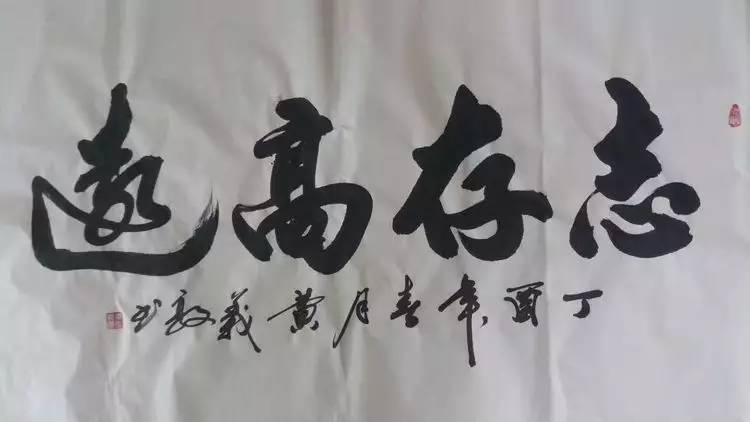 志存高遠
丁酉年春月黄義敬书